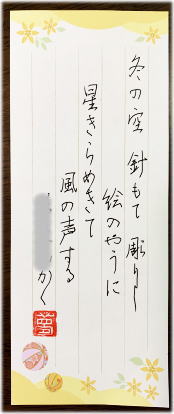 冬の空 針もて彫りし
絵のやうに
星きらめきて
風の声する
かく
夢